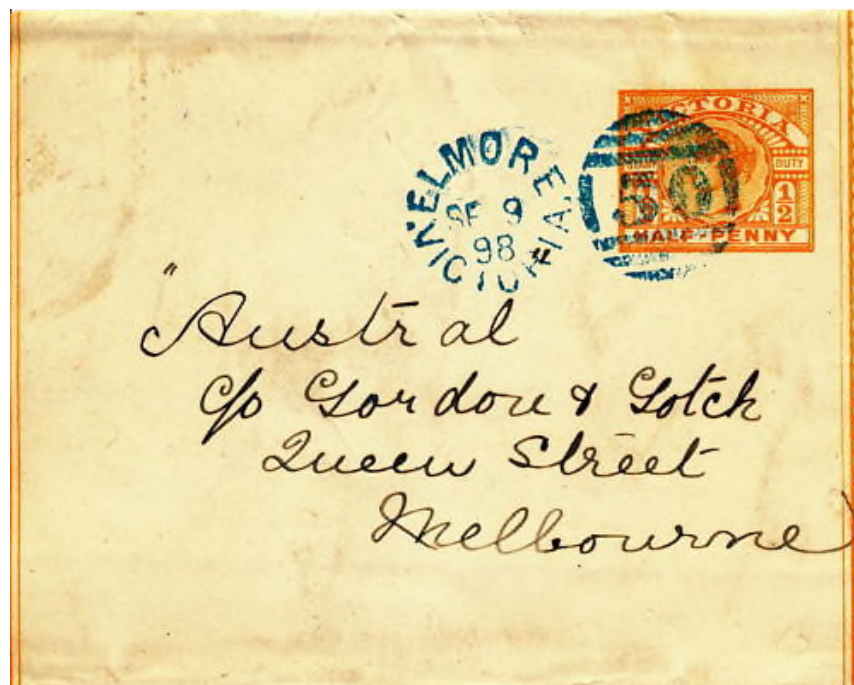 VICTORIA
DUTY
1/2
HALF-PENNY
ELMORE
SE 9
98
VICTORIA
50
"Austral
c/o Gordon & Gotch
Queen Street
Melbourne